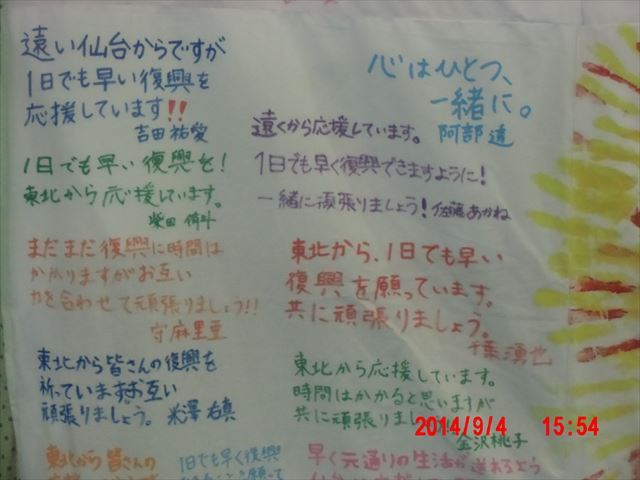 遠い仙台からですが
1日でも早い復興を
応援しています!!
吉田 祐愛
心はひとつ、
一緒に。
阿部 遥
遠くから応援しています。
1日でも早く復興できますように!
一緒に頑張りましょう! 佐藤あかね
1日でも早い復興を!
東北から応援しています。
柴田
まだまだ復興に時間は
かかりますがお互い
力を合わせて頑張りましょう!!
守 麻里亜
東北から、1日でも早い
復興を願っています。
共に頑張りましょう。
千葉 湧也
東北から皆さんの復興を
祈っていますお互い
頑張りましょう。米澤 右真
東北から応援しています。
時間はかかると思いますが
共に頑張りましょう
金沢桃子
東北から皆さんの
1日でも早く復興
早く元通りの生活が送れるよう
2014/9/4 15:54